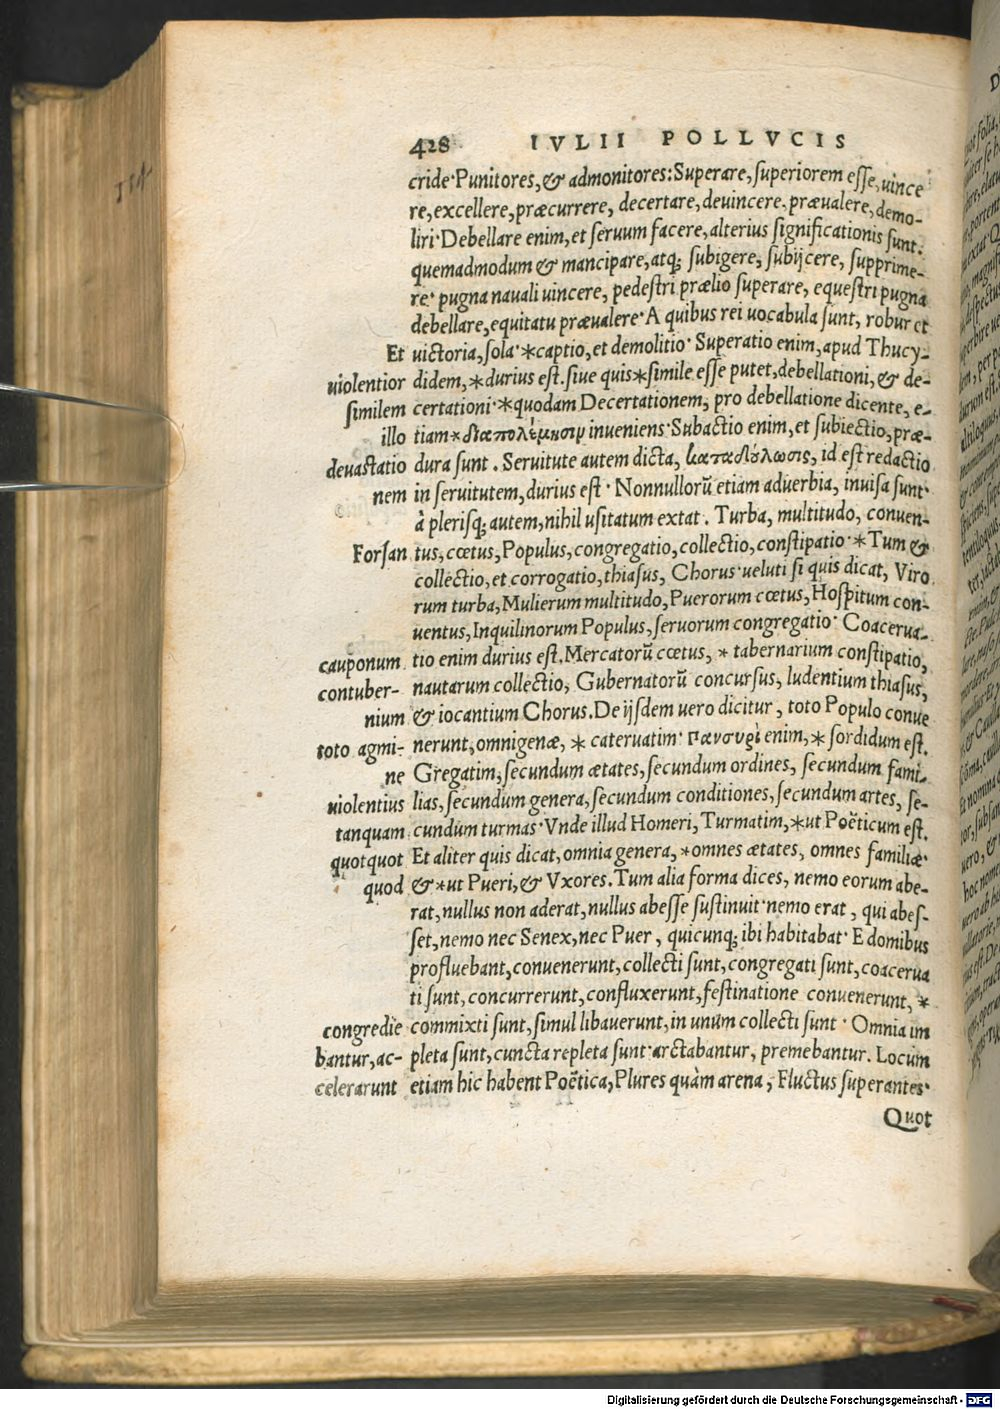 428 IVLII POLLVCIS
cride·Punitores,& admonitores:Superare,ſuperiorem eſſe,uince
re,excellere,præcurrere, decertare,deuincere, præualere,demo-
liri·Debellare enim,et ſeruum facere,alterius ſignificationis ſunt.
quemadmodum & mancipare,atq; ſubigere, ſubijcere, ſupprime-
re· pugna nauali uincere, pedeſtri prælio ſuperare, equeſtri pugna
debellare,equitatu præualere·A quibus rei uocabula ſunt, robur et
Et uictoria,ſola·*captio,et demolitio· Superatio enim,apud Thucy-
uiolentior didem,*durius eſt.ſiue quis*ſimile eſſe putet,debellationi,& de-
ſimilem certationi·*quodam Decertationem, pro debellatione dicente, e-
illo tiam*διαπολέμησιν inueniens·Subactio enim,et ſubiectio,præ-
deuaſtatio dura ſunt. Seruitute autem dicta, καταδόλωσις, id eſt redactio
nem in ſeruitutem,durius eſt· Nonnullorū etiam aduerbia, inuiſa ſunt·
à pleriſq; autem,nihil uſitatum extat. Turba, multitudo, conuen-
Forſan tus,cœtus,Populus,congregatio,collectio,conſtipatio·*Tum &
collectio,et corrogatio,thiaſus, Chorus·ueluti ſi quis dicat, Viro
rum turba,Mulierum multitudo,Puerorum cœtus,Hoſpitum con-
uentus,Inquilinorum Populus,ſeruorum congregatio· Coacerua-
cauponum tio enim durius eſt.Mercatorū cœtus, * tabernarium conſtipatio,
contuber- nautarum collectio, Gubernatorū concurſus, ludentium thiaſus,
nium & iocantium Chorus.De ijſdem uero dicitur, toto Populo conue
toto agmi- nerunt,omnigenæ, * cateruatim· πανσυρὶ enim,* ſordidum eſt.
ne Gregatim,ſecundum ætates,ſecundum ordines, ſecundum fami-
uiolentius lias,ſecundum genera,ſecundum conditiones,ſecundum artes, ſe-
tanquam cundum turmas·Vnde illud Homeri,Turmatim,*ut Poëticum eſt.
quotquot Et aliter quis dicat,omnia genera,*omnes ætates, omnes familiæ·
quod &*ut Pueri,& Vxores.Tum alia forma dices, nemo eorum abe-
rat,nullus non aderat,nullus abeſſe ſuſtinuit·nemo erat, qui abeſ-
ſet,nemo nec Senex,nec Puer, quicunq; ibi habitabat·E domibus
profluebant,conuenerunt,collecti ſunt,congregati ſunt,coacerua
ti ſunt,concurrerunt,confluxerunt,feſtinatione conuenerunt, *
congredie commixti ſunt,ſimul libauerunt,in unum collecti ſunt· Omnia im
bantur,ac- pleta ſunt,cuncta repleta ſunt·arctabantur, premebantur. Locum
celerarunt etiam hic habent Poëtica,Plures quàm arena, Fluctus ſuperantes·
Quot
Digitalisierung gefördert durch die Deutsche Forschungsgemeinschaft - DFG